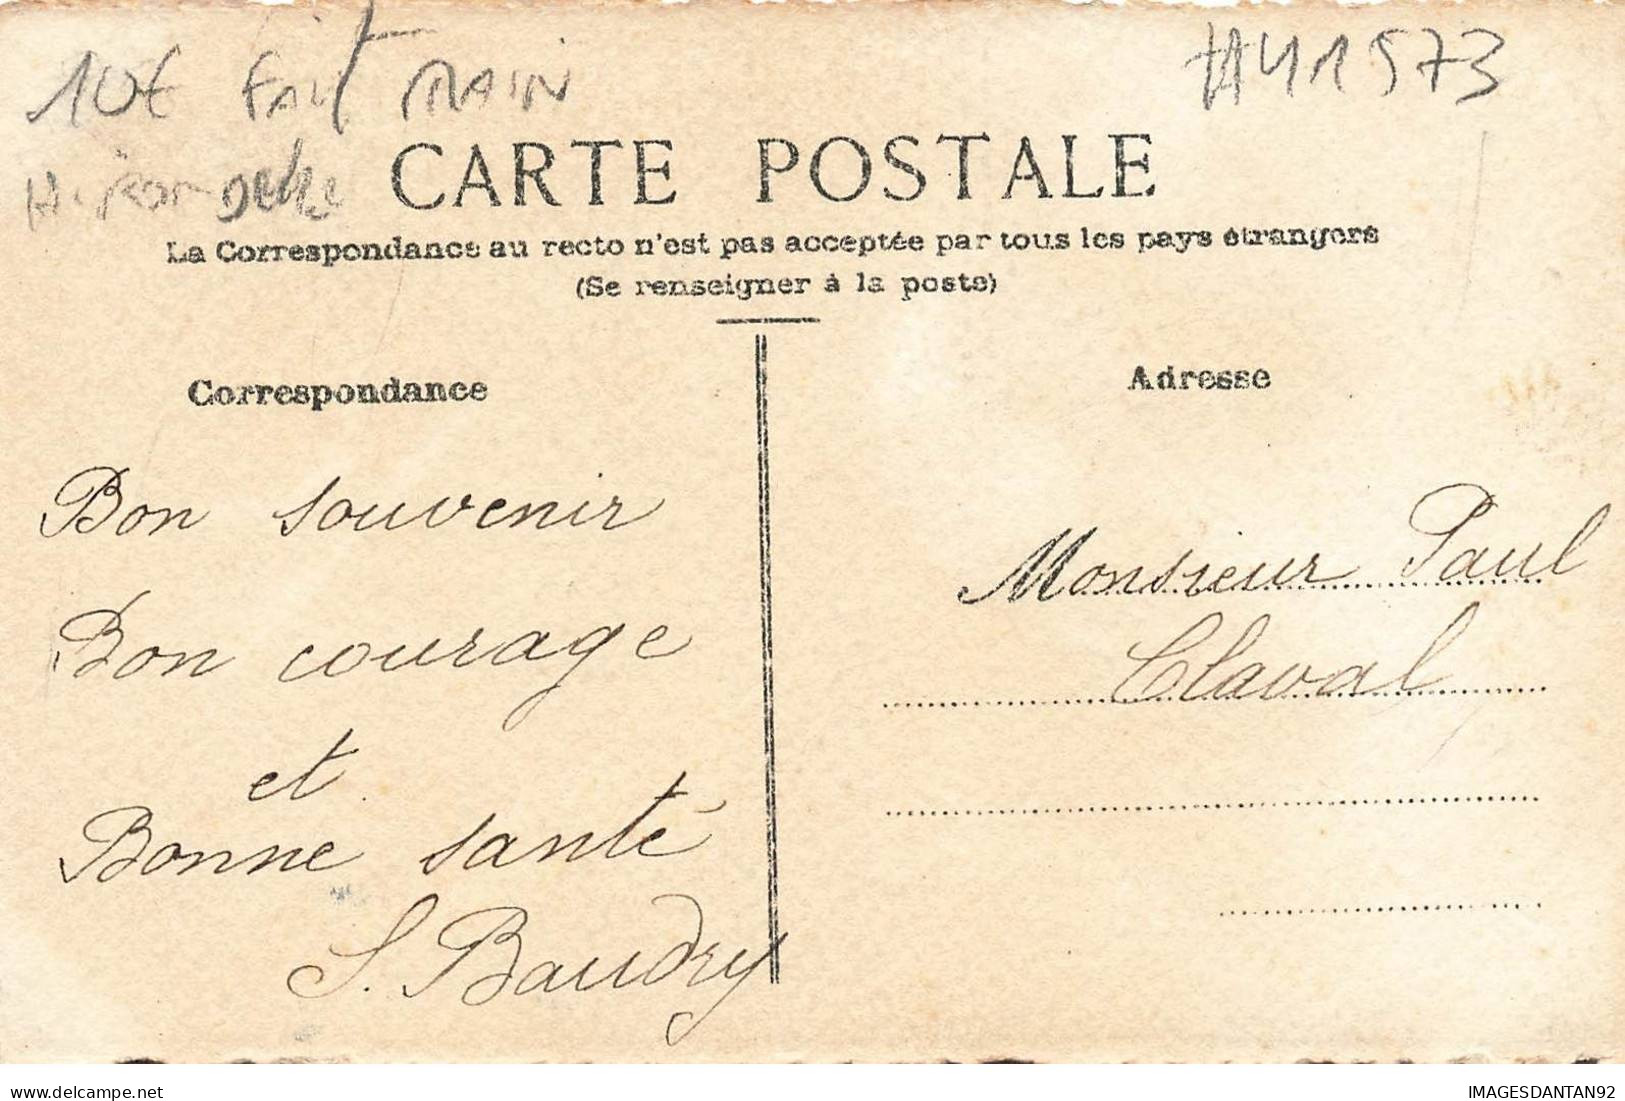 10€ FAIT MAIN
#41573
HIRONDELLE
CARTE POSTALE
La Correspondance au recto n'est pas acceptée par tous les pays étrangers
(Se renseigner à la poste)
Correspondance
Bon souvenir
Bon courage
et
Bonne santé
S. Baudry
Adresse
Monsieur Paul
Claval
delcampe.net
IMAGESDANTAN92